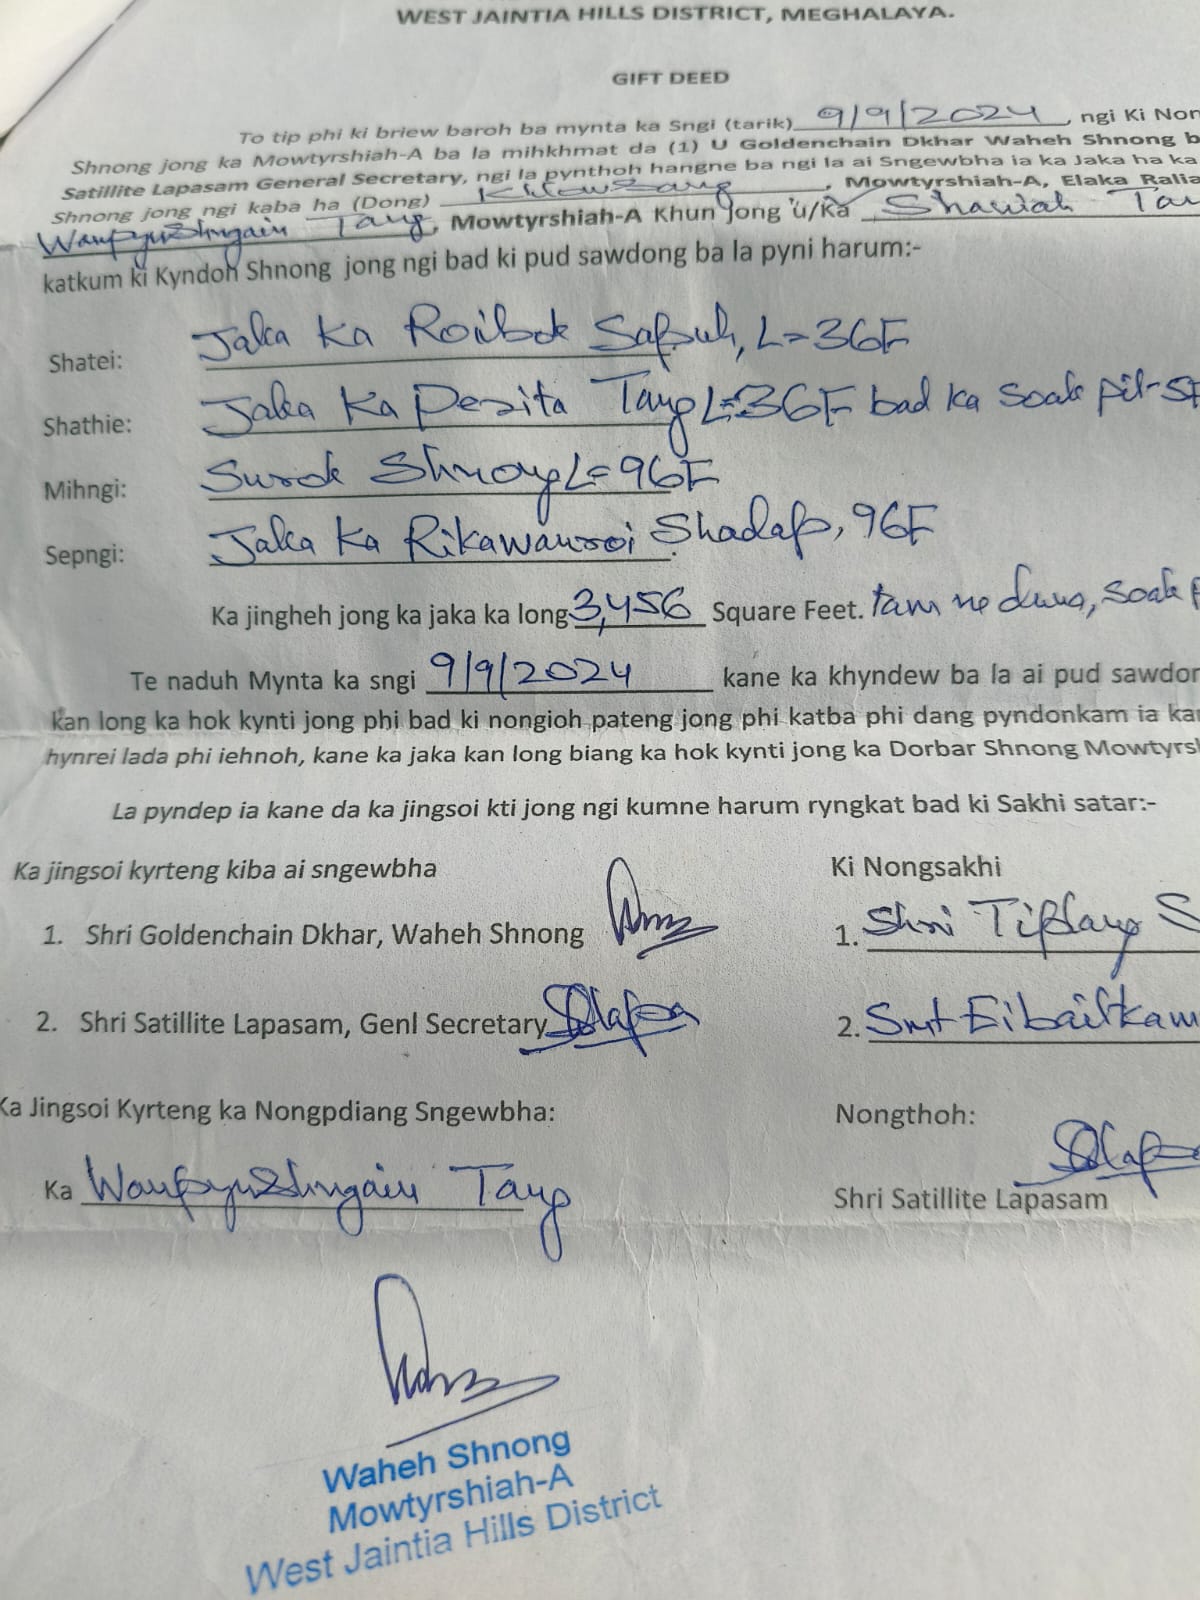 WEST JAINTIA HILLS DISTRICT, MEGHALAYA.
GIFT DEED
To tip phi ki briew baroh ba mynta ka Sngi (tarik) 9/9/2024, ngi Ki Non
Shnong jong ka Mowtyrshiah-A ba la mihkhmat da (1) U Goldenchain Dkhar Waheh Shnong b
Satillite Lapasam General Secretary, ngi la pynthoh hangne ba ngi la ai Sngewbha ia ka Jaka ha ka
Shnong jong ngi kaba ha (Dong) , Mowtyrshiah-A, Elaka Ralia
Wanpynshngain Tang, Mowtyrshiah-A Khun Jong u/Ka Shawiah Tan
katkum ki Kyndoh Shnong jong ngi bad ki pud sawdong ba la pyni harum:-
Shatei: Jaka Ka Roibok Sapuh, L=36F
Shathie: Jaka Ka Perita Tang L=36F bad ka soak pit-
Mihngi: Surok Shnong L=96F
Sepngi: Jaka Ka Rikawansoi Shadap, 96F
Ka jingheh jong ka jaka ka long 3,456 Square Feet. tam ne duna, soak
Te naduh Mynta ka sngi 9/9/2024 kane ka khyndew ba la ai pud sawdon
kan long ka hok kynti jong phi bad ki nongioh pateng jong phi katba phi dang pyndonkam ia ka
hynrei lada phi iehnoh, kane ka jaka kan long biang ka hok kynti jong ka Dorbar Shnong Mowtyrs
La pyndep ia kane da ka jingsoi kti jong ngi kumne harum ryngkat bad ki Sakhi satar:-
Ka jingsoi kyrteng kiba ai sngewbha
Ki Nongsakhi
1. Shri Goldenchain Dkhar, Waheh Shnong
1. Shri Tiplang S
2. Shri Satillite Lapasam, Genl Secretary
2. Smt Eibaitkam
Ka Jingsoi Kyrteng ka Nongpdiang Sngewbha:
Nongthoh:
Ka Wanpynshngain Tang
Shri Satillite Lapasam
Waheh Shnong
Mowtyrshiah-A
West Jaintia Hills District